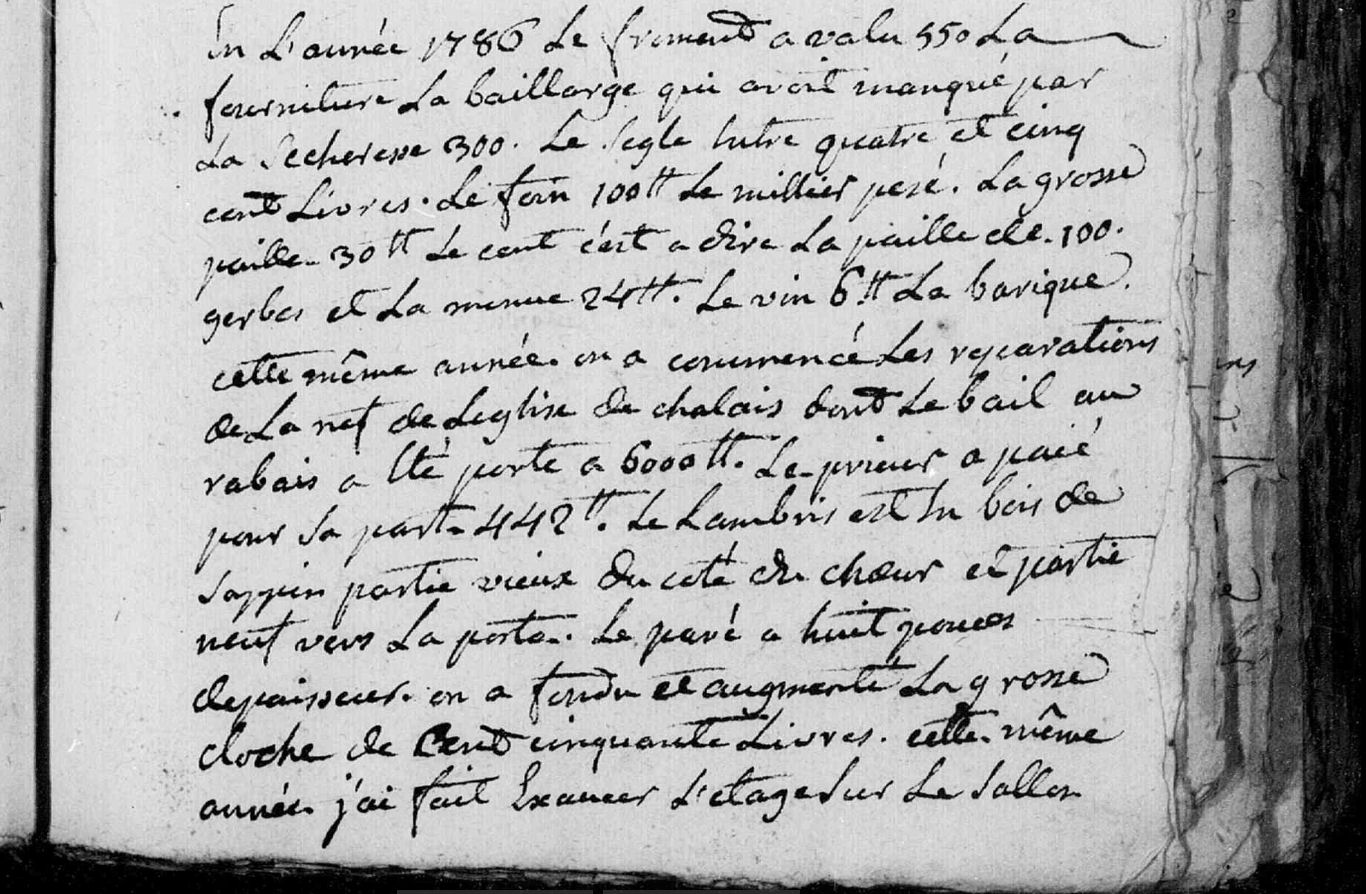 En L'année 1786 Le froment a valu 550 La
fourniture La baillarge qui avoit manqué par
La Secheresse 300. Le Segle Entre quatre et cinq
cent Livres. Le foin 100tt Le millier pesé. La grosse
paille 30tt Le cent c'est a dire La paille de 100.
gerbes et La menue 24tt. Le vin 6tt La barique.
cette même année on a commencé Les reparations
de La nef de Leglise de chalais dont Le bail au
rabais a Eté porté a 6000tt. Le prieur a paié
pour Sa part 442tt. Le Lambris est En bois de
Sappin partie vieux du coté du chœur et partie
neuf vers La porte. Le pavé a huit pouces
depaisseur. on a fondu et augmenté La grosse
cloche de Cent cinquante Livres. cette même
année j'ai fait Exaucer L'etage Sur Le Sallon